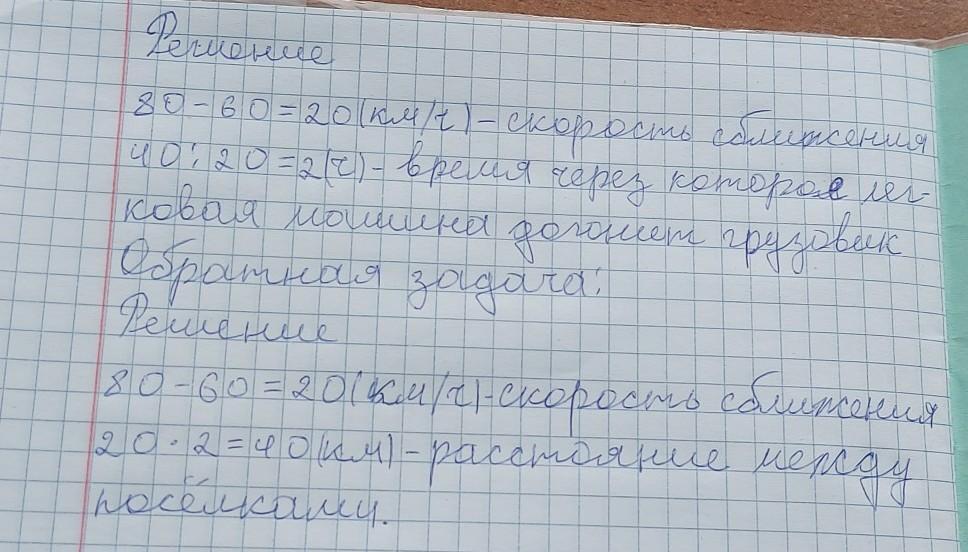 Решение
80-60=20(км/ч)-скорость сближения
40:20=2(ч)-время через которое лег-
ковая машина догонит грузовик
Обратная задача:
Решение
80-60=20(км/ч)-скорость сближения
20·2=40(км)-расстояние между
посёлками.